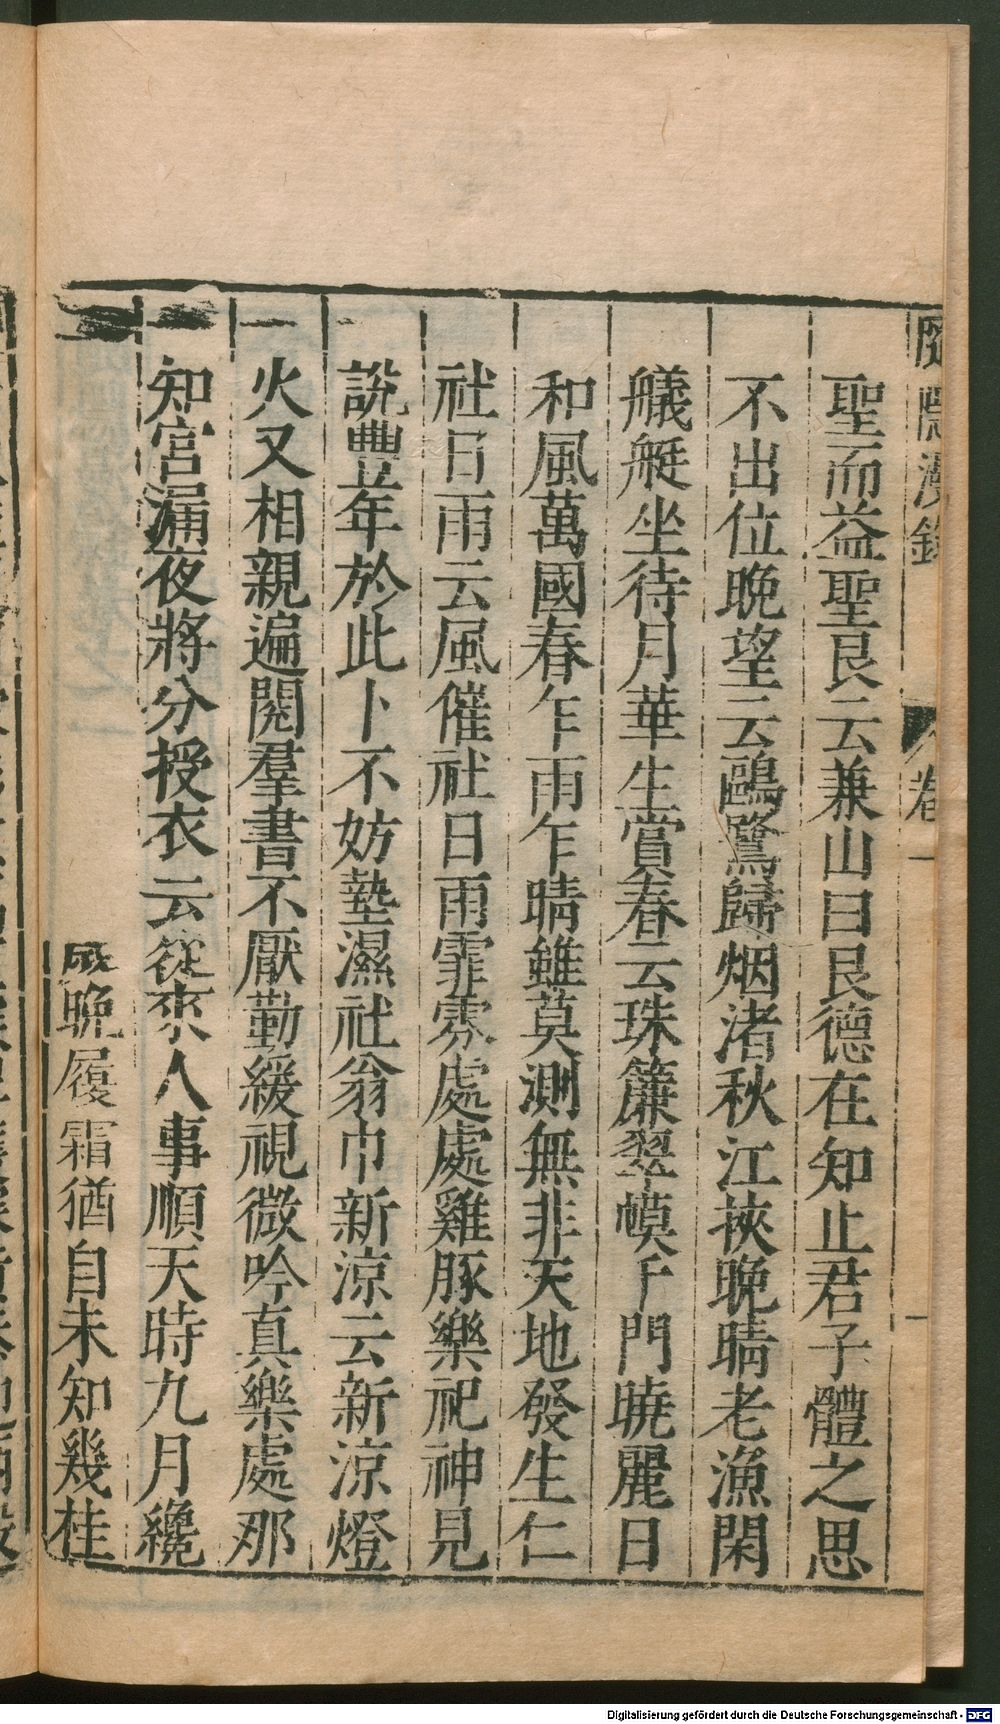 隱漫錄
卷一
聖而益聖艮云兼山曰艮德在知止君子體之思
不出位晩望云鷗鷺歸烟渚秋江挾晩晴老漁閑
艤艇坐待月華生賞春云珠簾翠幙千門曉麗日
和風萬國春乍雨乍晴雖莫測無非天地發生仁
社日雨云風催社日雨霏霧處處雞豚樂祀神見
說豐年於此卜不妨墊濕社翁巾新涼云新涼燈
火又相親遍閱羣書不厭勤緩視微吟真樂處那
知宮漏夜將分授衣云從來人事順天時九月纔
晩履霜猶自未知幾桂
Digitalisierung gefördert durch die Deutsche Forschungsgemeinschaft - DFG